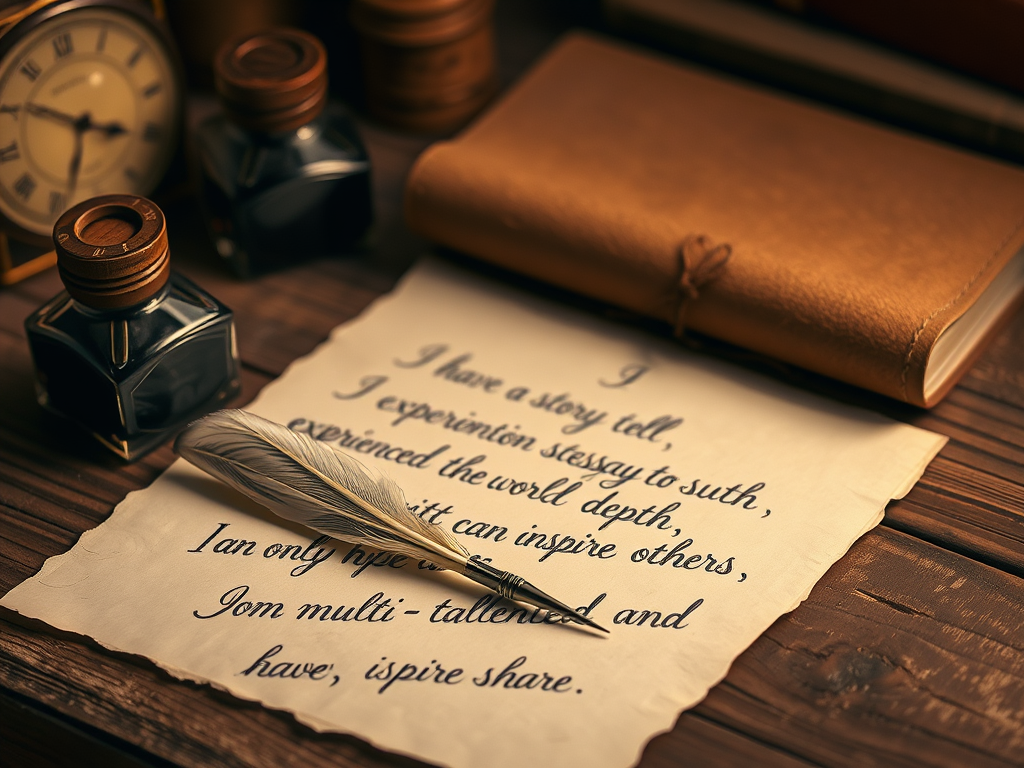 I
I have a story tell,
I experimtön stessay to suth,
experienced the world depth,
can inspire others,
I an only
Iom multi-tallented and
have, ispire share.